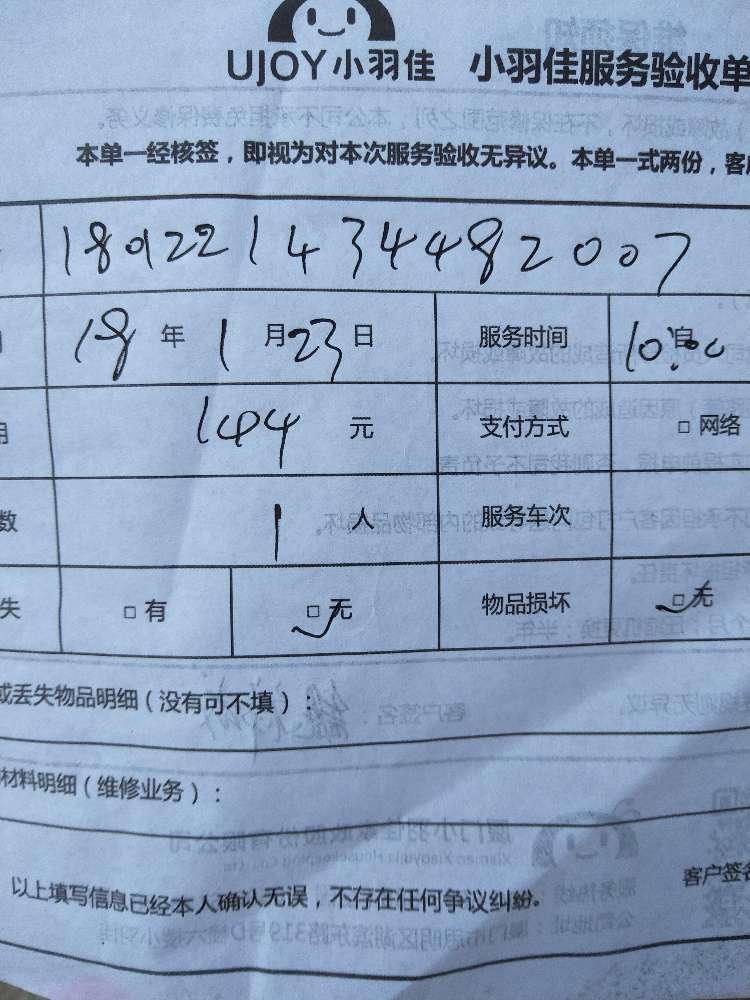 UJOY小羽佳 小羽佳服务验收单
本单一经核签，即视为对本次服务验收无异议。本单一式两份，客户
1801221434482007
18年1月23日 服务时间 10:00
144元 支付方式 □ 网络
数 1人 服务车次
失 □ 有 □ 无 物品损坏 □ 无
或丢失物品明细（没有可不填）：
材料明细（维修业务）：
客户签名
以上填写信息已经本人确认无误，不存在任何争议纠纷。